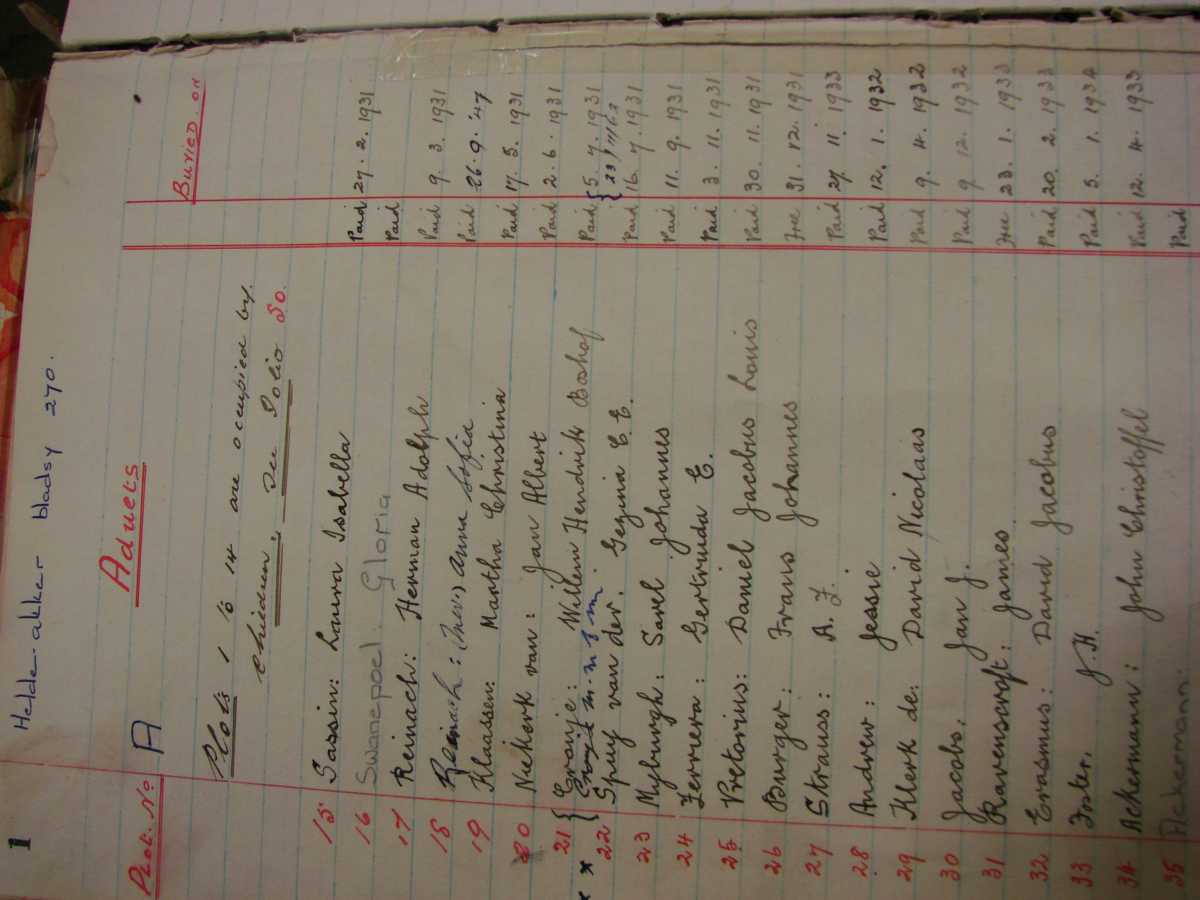 1 Helde-akker bladsy 270.
Plot. No A Adults Buried. on
Plots 1 to 14 are occupied by
Children, See Folio 50.
15 Sassin: Laura Isabella Paid 27. 2. 1931
16 Swanepoel. Gloria Paid
17 Reinach: Herman Adolph Paid 9. 3. 1931
18 Reinach: (Mrs) Anna Sofia Paid 26. 9. '47
19 Klaassen: Martha Christina Paid 17. 5. 1931
20 Niekerk van: Jan Albert Paid 2. 6. 1931
x 21 { Cronje: Willem Hendrik Boshof Paid { 5. 7. 1931
23/11/63
x 22 Spuy van der. Gezina C. E. Paid 16. 7. 1931
23 Myburgh: Sarel Johannes Paid 11. 9. 1931
24 Ferreira: Gertruida E. Paid 3. 11. 1931
25 Pretorius: Daniel Jacobus Louis Paid 30. 11. 1931
26 Burger: Frans Johannes Free 31. 12. 1931
27 Strauss: A. F. Paid 27. 11. 1933
28 Andrew: Jessie Paid 12. 1. 1932
29 Klerk de: David Nicolaas Paid 9. 4. 1932
30 Jacobs: Jan J. Paid 9. 12. 1932
31 Ravenscroft: James Free 23. 1. 1933
32 Erasmus: David Jacobus Paid 20. 2. 1933
33 Foster. J. H. Paid 5. 1. 1934
34 Ackermann: John Christoffel Paid 12. 4. 1933
35 Ackerman: Paid